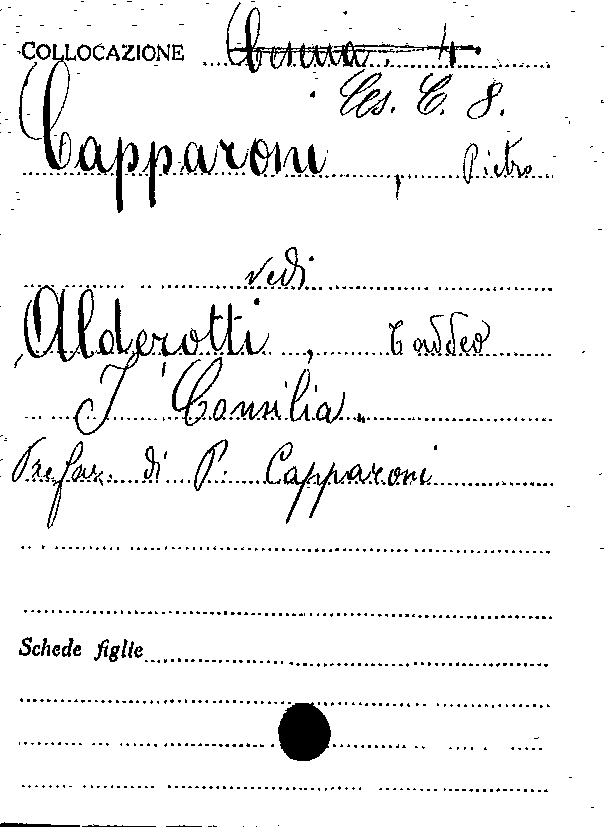 COLLOCAZIONE Cesena. 4.
Ces. C. 8.
Capparoni, Pietro
vedi
Alderotti, Taddeo
I Consilia.
Prefaz. di P. Capparoni
Schede figlie